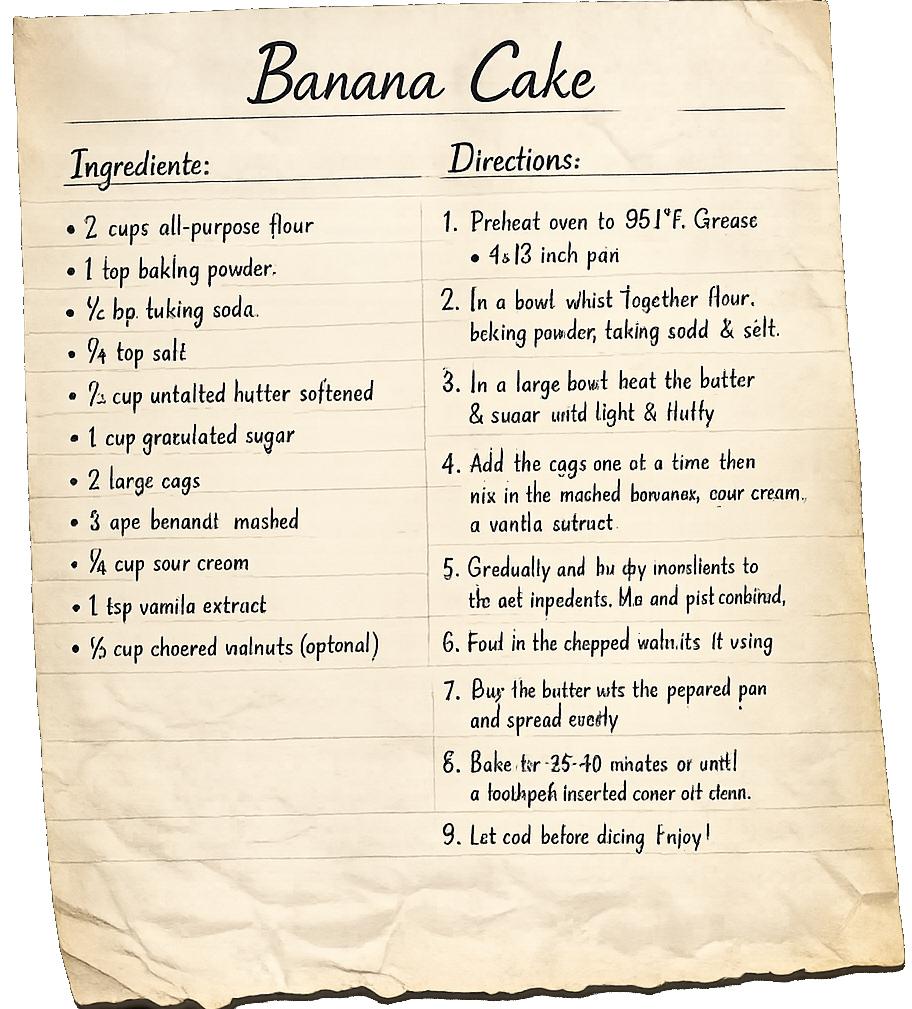 Banana Cake
Ingrediente:
• 2 cups all-purpose flour
• 1 top baking powder.
• ½ bp. tuking soda.
• 9/4 top salt
• cup untalted hutter softened
• 1 cup gratulated sugar
• 2 large cags
• 3 ape benandt mashed
• 9/4 cup sour creom
• 1 tsp vamila extract
• ⅓ cup choered walnuts (optonal)
Directions:
1. Preheat oven to 951°F. Grease
• 4x13 inch pan
2. In a bowl whist together flour.
beking powder, taking sodd & sélt.
3. In a large bowt heat the batter
& suaar untd light & fluffy
4. Add the cags one at a time then
nix in the mached cour cream,
a vantla sutruct.
5. Gredually and to
the aet inpedents. and pist conbined,
6. Foul in the chepped It vsing
7. Buy the butter wts the pepared pan
and spread
8. Bake 25-40 minates or until
a inserted coner oit clenn.
9. Let cod before dicing Enjoy!